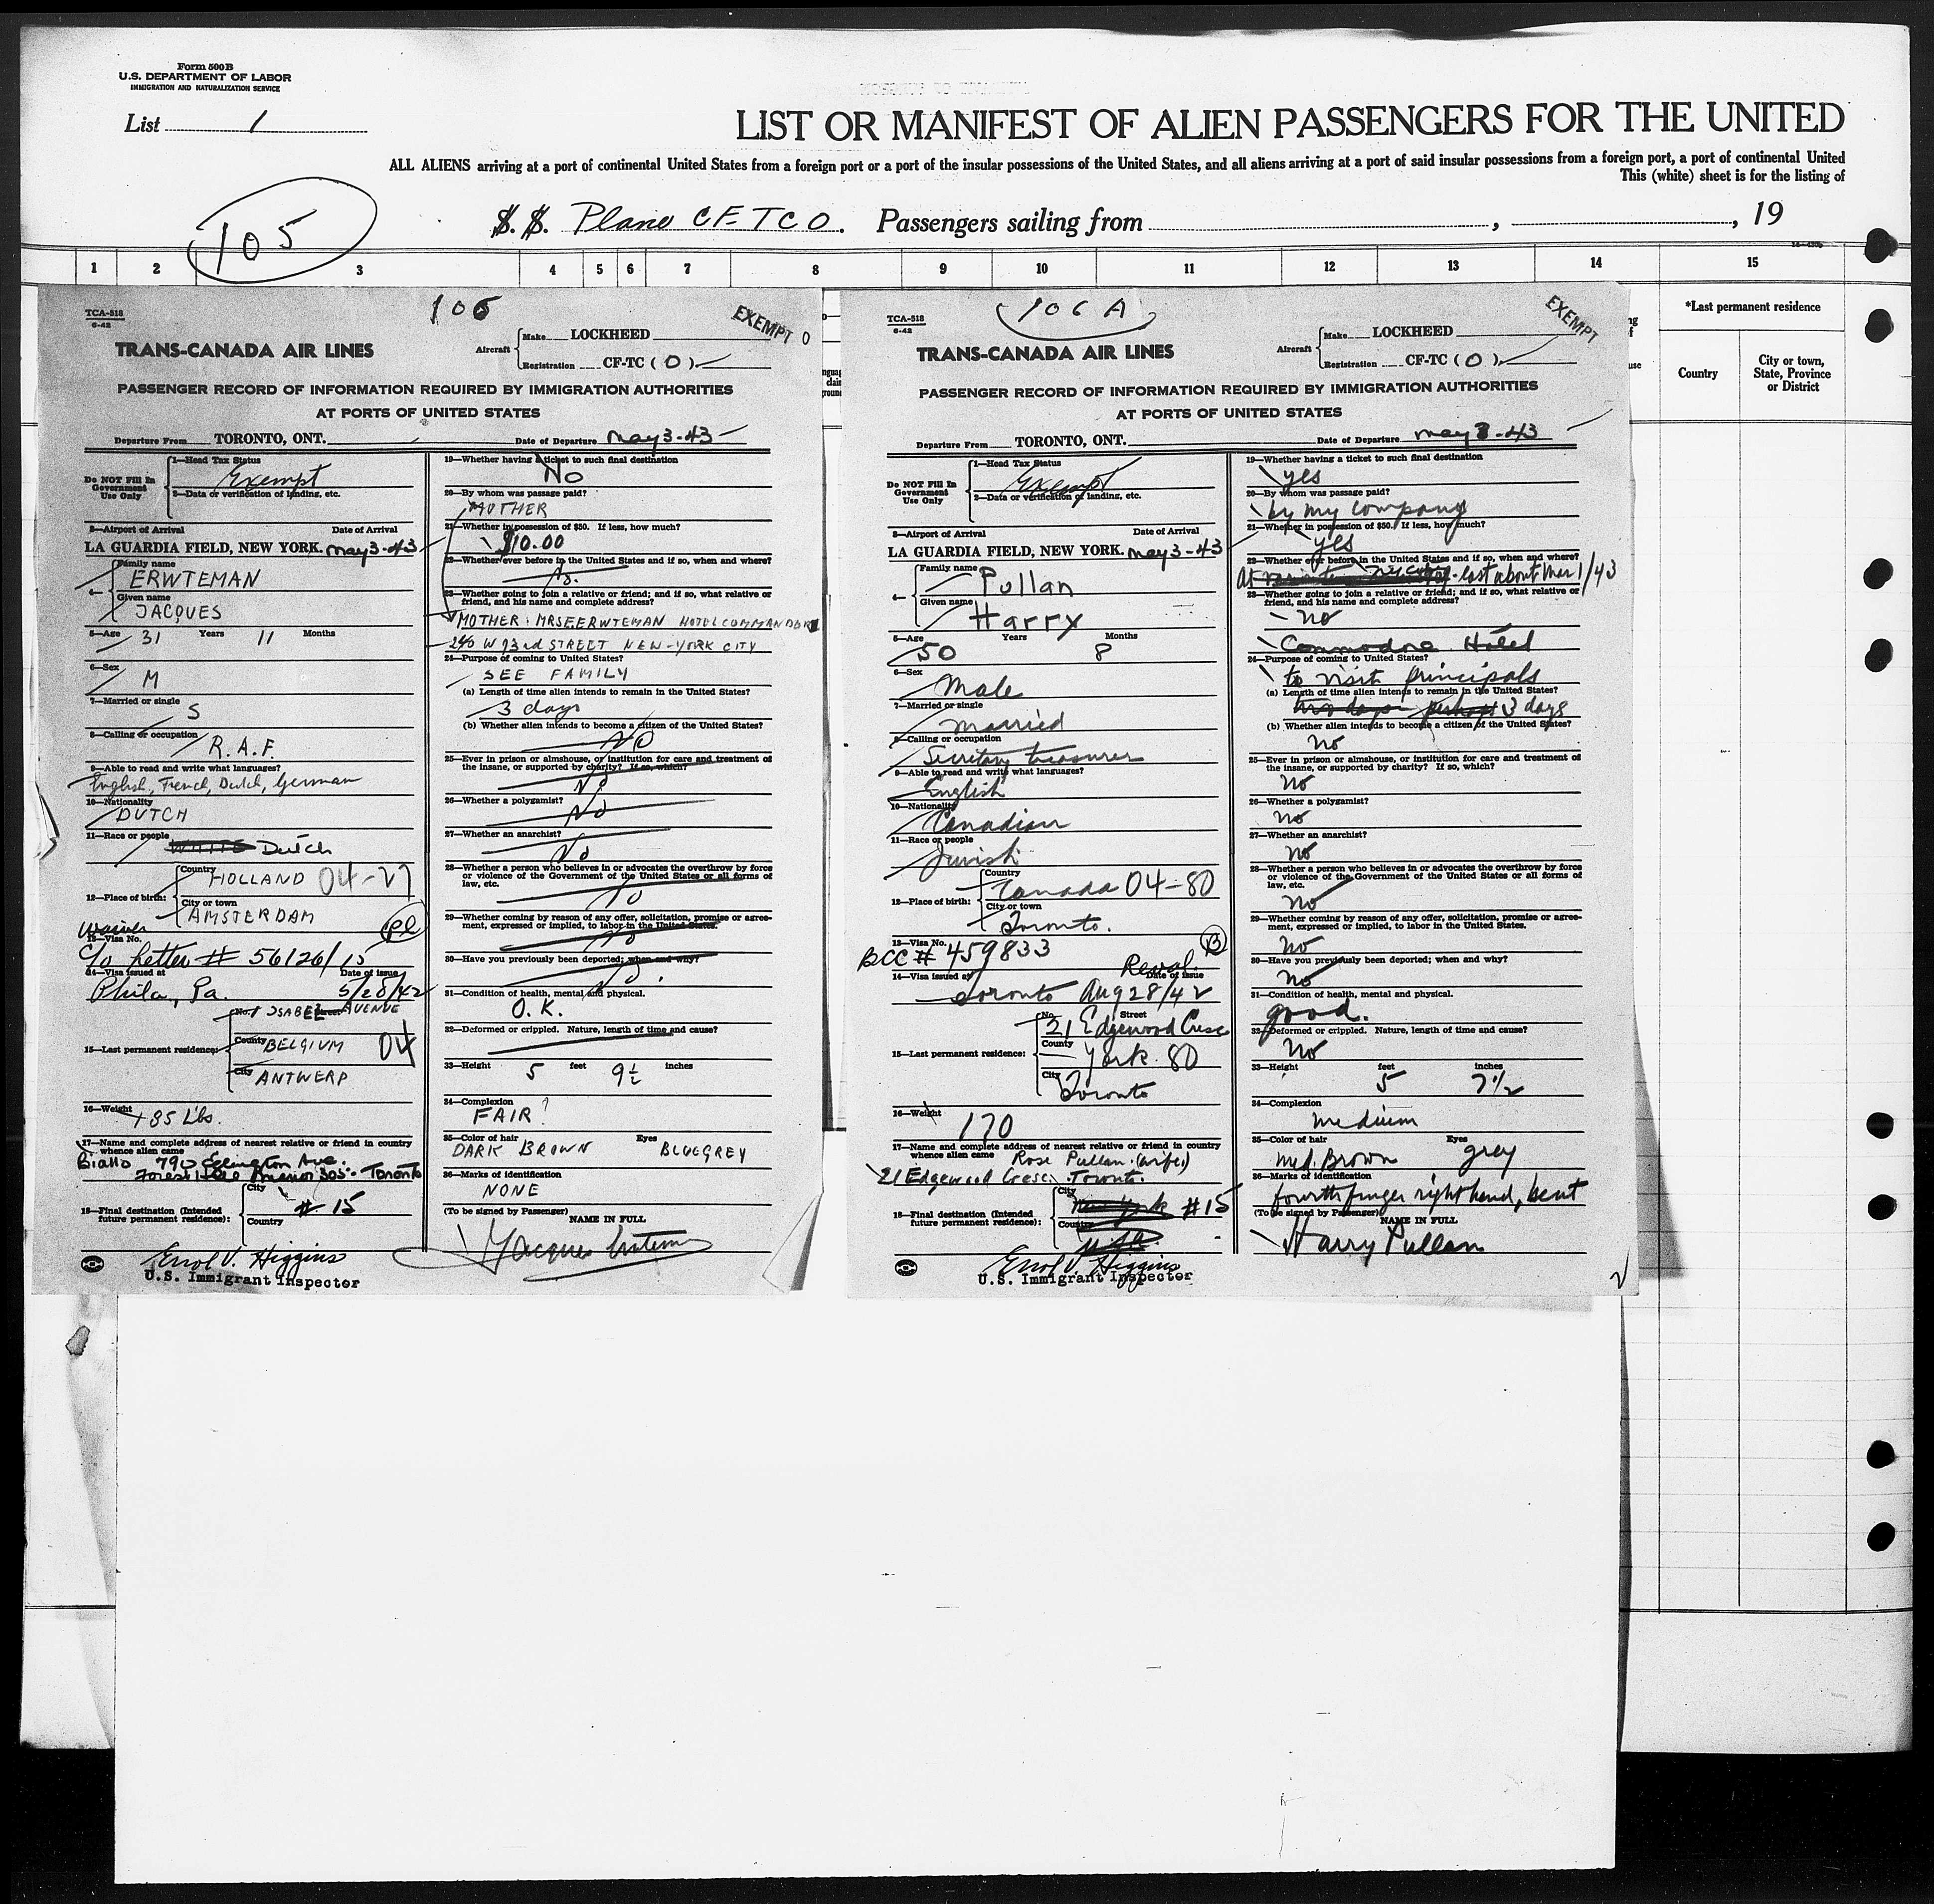 Form 500B
U.S. DEPARTMENT OF LABOR
IMMIGRATION AND NATURALIZATION SERVICE
List 1
LIST OR MANIFEST OF ALIEN PASSENGERS FOR THE UNITED
ALL ALIENS arriving at a port of continental United States from a foreign port or a port of the insular possessions of the United States, and all aliens arriving at a port of said insular possessions from a foreign port, a port of continental United
This (white) sheet is for the listing of
105
S. S. Plane CF-TCO. Passengers sailing from , , 19
1 2 3 4 5 6 7 8 9 10 11 12 13 14 15
*Last permanent residence
Country
City or town, State, Province or District
106
EXEMPT
TCA-518
6-42
TRANS-CANADA AIR LINES
Aircraft
Make LOCKHEED
Registration CF-TC (O)
PASSENGER RECORD OF INFORMATION REQUIRED BY IMMIGRATION AUTHORITIES
AT PORTS OF UNITED STATES
Departure From TORONTO, ONT. Date of Departure May 3-43
Do NOT Fill In Government Use Only
1—Head Tax Status
Exempt
2—Data or verification of landing, etc.
3—Airport of Arrival Date of Arrival
LA GUARDIA FIELD, NEW YORK. May 3-43
4— Family name
ERWTEMAN
Given name
JACQUES
5—Age 31 Years 11 Months
6—Sex
M
7—Married or single
S
8—Calling or occupation
R.A.F.
9—Able to read and write what languages?
English, French, Dutch, German
10—Nationality
DUTCH
11—Race or people
WHITE Dutch
12—Place of birth:
Country
HOLLAND 04-27
City or town
AMSTERDAM
Waiver
13—Visa No.
C/o Letter # 56126/15
14—Visa issued at Date of issue
Phila, Pa. 5/28/42
15—Last permanent residence:
No. 1 ISABEL Street AVENUE
County BELGIUM 04
City ANTWERP
16—Weight
185 Lbs.
17—Name and complete address of nearest relative or friend in country whence alien came
Biallo 790 Eglington Ave.
Forest Hill Manor 305 - Toronto
18—Final destination (Intended future permanent residence):
City
# 15
Country
Errol V. Higgins
U.S. Immigrant Inspector
19—Whether having a ticket to such final destination
No
20—By whom was passage paid?
MOTHER
21—Whether in possession of $50. If less, how much?
$10.00
22—Whether ever before in the United States and if so, when and where?
No.
23—Whether going to join a relative or friend; and if so, what relative or friend, and his name and complete address?
MOTHER: MRS E. ERWTEMAN HOTEL COMMANDER
240 W 73rd STREET NEW-YORK CITY
24—Purpose of coming to United States?
SEE FAMILY
(a) Length of time alien intends to remain in the United States?
3 days
(b) Whether alien intends to become a citizen of the United States?
NO
25—Ever in prison or almshouse, or institution for care and treatment of the insane, or supported by charity? If so, which?
No
26—Whether a polygamist?
No
27—Whether an anarchist?
No
28—Whether a person who believes in or advocates the overthrow by force or violence of the Government of the United States or all forms of law, etc.
No
29—Whether coming by reason of any offer, solicitation, promise or agreement, expressed or implied, to labor in the United States.
No
30—Have you previously been deported; when and why?
No.
31—Condition of health, mental and physical.
O.K.
32—Deformed or crippled. Nature, length of time and cause?
33—Height 5 feet 9½ inches
34—Complexion
FAIR
35—Color of hair Eyes
DARK BROWN BLUEGREY
36—Marks of identification
NONE
(To be signed by Passenger)
NAME IN FULL
106 A
EXEMPT
TCA-518
6-42
TRANS-CANADA AIR LINES
Aircraft
Make LOCKHEED
Registration CF-TC (O)
PASSENGER RECORD OF INFORMATION REQUIRED BY IMMIGRATION AUTHORITIES
AT PORTS OF UNITED STATES
Departure From TORONTO, ONT. Date of Departure May 3-43
Do NOT Fill In Government Use Only
1—Head Tax Status
Exempt
2—Data or verification of landing, etc.
3—Airport of Arrival Date of Arrival
LA GUARDIA FIELD, NEW YORK. May 3-43
4— Family name
Pullan
Given name
Harry
5—Age Years Months
50 8
6—Sex
Male
7—Married or single
Married
8—Calling or occupation
Secretary treasurer
9—Able to read and write what languages?
English
10—Nationality
Canadian
11—Race or people
Jewish
12—Place of birth:
Country
Canada 04-80
City or town
Toronto.
13—Visa No.
BCC # 459833
B
Reval.
14—Visa issued at Date of issue
Toronto Aug 28/42
15—Last permanent residence:
No. Street
21 Edgewood Cresc
County
York 80
City
Toronto
16—Weight
170
17—Name and complete address of nearest relative or friend in country whence alien came
Rose Pullan (wife)
21 Edgewood Cresc. Toronto.
18—Final destination (Intended future permanent residence):
City
New York #15
Country
USA.
Errol V. Higgins
U.S. Immigrant Inspector
19—Whether having a ticket to such final destination
yes
20—By whom was passage paid?
by my company
21—Whether in possession of $50. If less, how much?
yes
22—Whether ever before in the United States and if so, when and where?
last about Mar 1/43
23—Whether going to join a relative or friend; and if so, what relative or friend, and his name and complete address?
no
Commodore Hotel
24—Purpose of coming to United States?
to visit principals
(a) Length of time alien intends to remain in the United States?
perhaps 3 days
(b) Whether alien intends to become a citizen of the United States?
no
25—Ever in prison or almshouse, or institution for care and treatment of the insane, or supported by charity? If so, which?
no
26—Whether a polygamist?
no
27—Whether an anarchist?
no
28—Whether a person who believes in or advocates the overthrow by force or violence of the Government of the United States or all forms of law, etc.
no
29—Whether coming by reason of any offer, solicitation, promise or agreement, expressed or implied, to labor in the United States.
no
30—Have you previously been deported; when and why?
no
31—Condition of health, mental and physical.
good.
32—Deformed or crippled. Nature, length of time and cause?
no
33—Height feet inches
5 7½
34—Complexion
medium
35—Color of hair Eyes
med. Brown grey
36—Marks of identification
fourth finger right hand, bent
(To be signed by Passenger)
NAME IN FULL
Harry Pullan
2